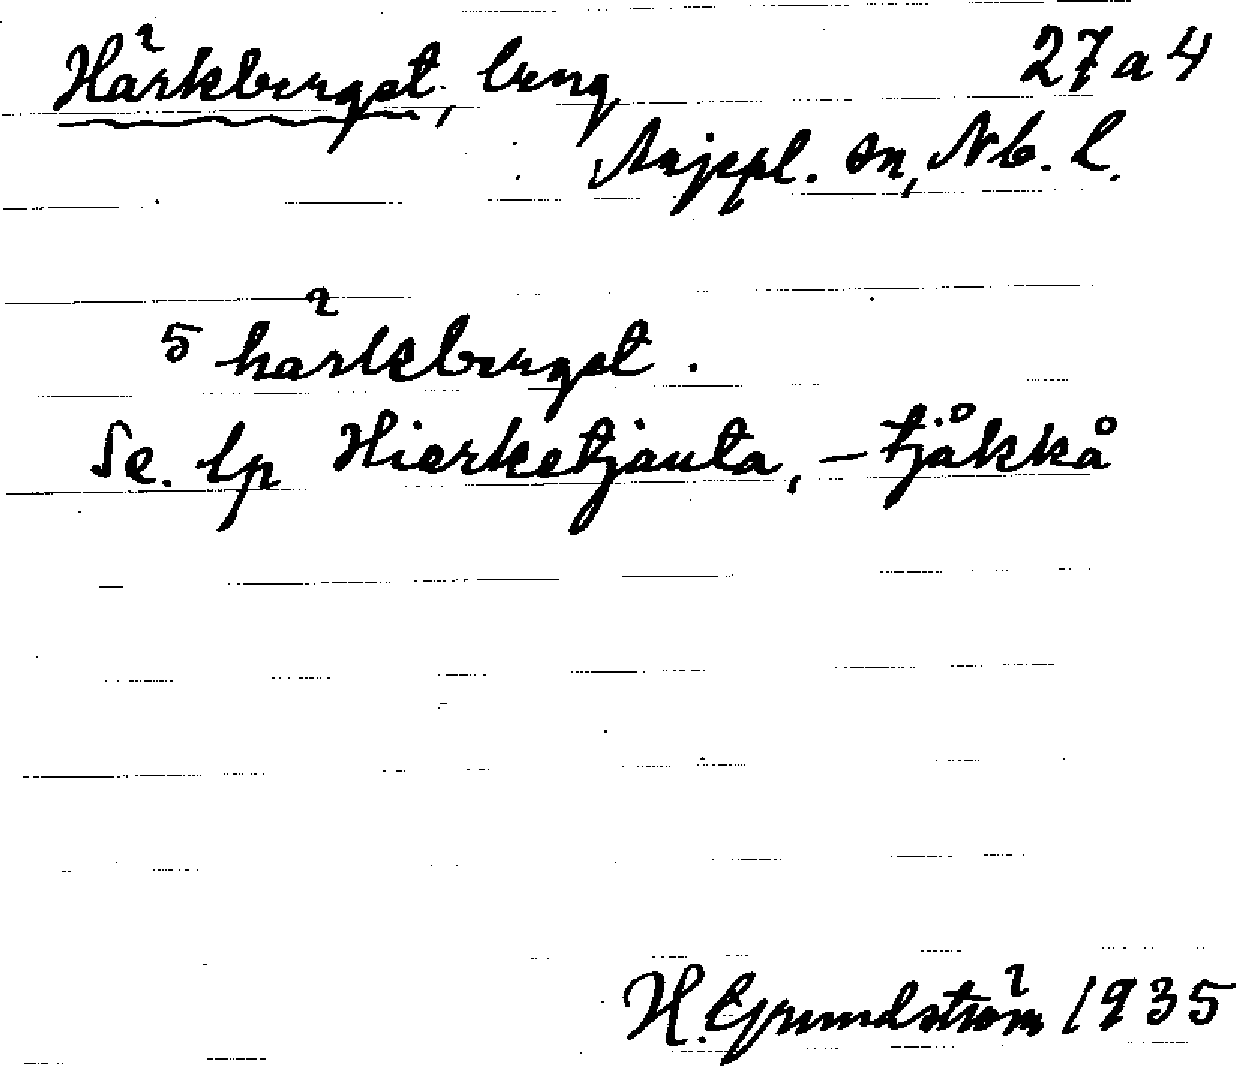 Härkberget, berg 27a4
Arjepl. sn, Nb. l.
5 härkberget.
Se. lp Hierketjåuta, - tjåkkå
H. Grundström 1935